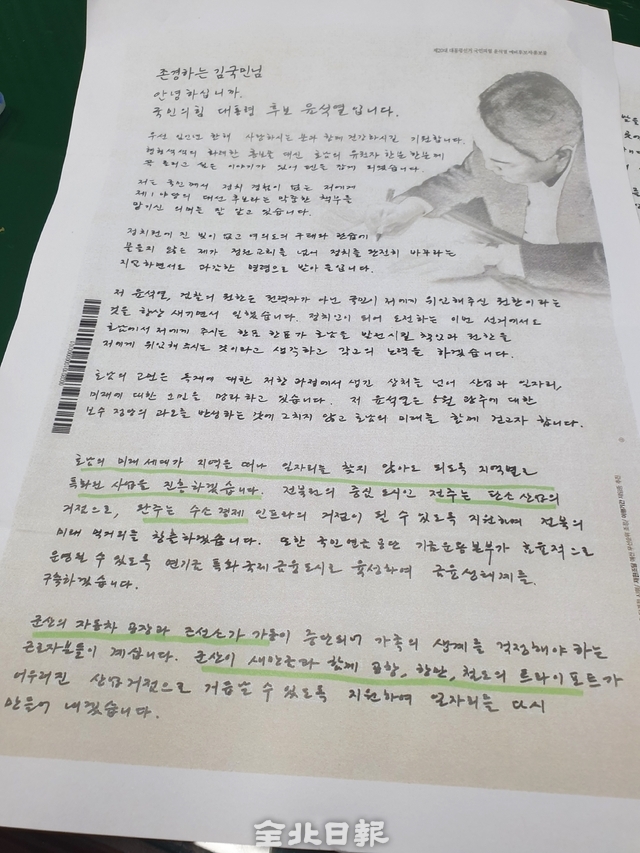 제20대 대통령선거 국민의힘 윤석열 예비후보자홍보물
존경하는 김국민님
안녕하십니까.
국민의힘 대통령 후보 윤석열입니다.
우선 임인년 한해 사랑하시는 분과 함께 건강하시길 기원합니다.
형형색색의 화려한 홍보물 대신 호남의 유권자 한분 한분께
꼭 드리고 싶은 이야기가 있어 펜을 잡게 되었습니다.
저는 국민께서 정치 경험이 없는 저에게
제1야당의 대선 후보라는 막중한 책무를
맡이신 의미를 잘 알고 있습니다.
정치권에 진 빚이 없고 여의도의 구태와 관습에
물들지 않은 제가 정권교체를 넘어 정치를 완전히 바꾸라는
지엄하면서도 과감한 명령으로 받아 들입니다.
저 윤석열, 검찰의 권한은 권력자가 아닌 국민이 저에게 위임해주신 권한이라는
것을 항상 새기면서 일했습니다. 정치인이 되어 도전하는 이번 선거에서도
호남에서 저에게 주시는 한표 한표가 호남을 발전시킬 책임과 권한을
저에게 위임해 주시는 것이라고 생각하고 각고의 노력을 하겠습니다.
호남의 고민은 독재에 대한 저항 과정에서 생긴 상처는 넘어 산업과 일자리,
미래에 대한 고민을 망라하고 있습니다. 저 윤석열은 5월 광주에 대한
보수 정당의 과오를 반성하는 것에 그치지 않고 호남의 미래를 함께 걷고자 합니다.
호남의 미래세대가 지역을 떠나 일자리를 찾지 않아도 되도록 지역별로
특화된 산업을 진흥하겠습니다. 전북권의 중심 도시인 전주는 탄소 산업의
거점으로, 완주는 수소 경제 인프라의 거점이 될 수 있도록 지원하여 전북의
미래 먹거리를 창출하겠습니다. 또한 국민연금공단 기금운용본부가 효율적으로
운영될 수 있도록 연기금 특화 국제금융도시로 육성하여 금융생태계를
구축하겠습니다.
군산의 자동차 공장과 조선소가 가동이 중단되어 가족의 생계를 걱정해야 하는
근로자분들이 계십니다. 군산이 새만금과 함께 공항, 항만, 철도의 트라이포트가
어우러진 산업거점으로 거듭날 수 있도록 지원하여 일자리를 다시
만들어 내겠습니다.
全北日報